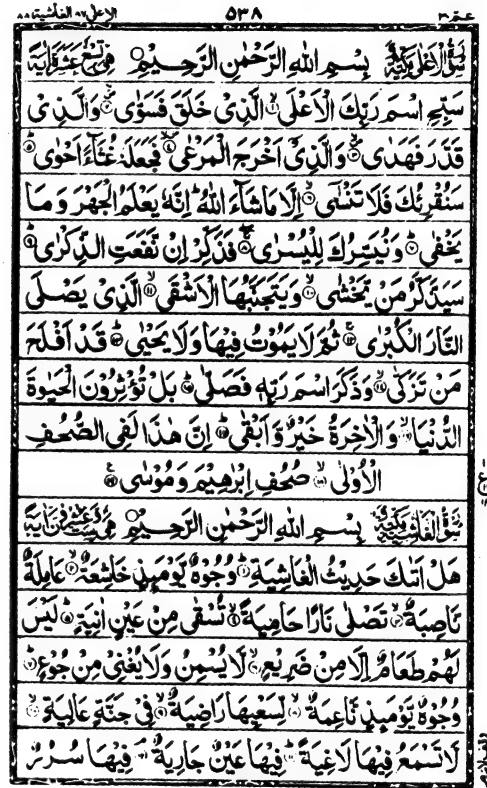 عـمّ ٣٠ ٥٣٨ الاعلى ٨٧ الغاشية ٨٨
بِسْمِ اللهِ الرَّحْمٰنِ الرَّحِيْمِ
سَبِّحِ اسْمَ رَبِّكَ الْاَعْلَى ۙ﴿١﴾ الَّذِىْ خَلَقَ فَسَوّٰى ۙ﴿٢﴾ وَالَّذِىْ
قَدَّرَ فَهَدٰى ۙ﴿٣﴾ وَالَّذِىْٓ اَخْرَجَ الْمَرْعٰى ۙ﴿٤﴾ فَجَعَلَهٗ غُثَآءً اَحْوٰى ؕ﴿٥﴾
سَنُقْرِئُكَ فَلَا تَنْسٰٓى ۙ﴿٦﴾ اِلَّا مَا شَآءَ اللّٰهُ ؕ اِنَّهٗ يَعْلَمُ الْجَهْرَ وَمَا
يَخْفٰى ؕ﴿٧﴾ وَنُيَسِّرُكَ لِلْيُسْرٰى ۚ﴿٨﴾ فَذَكِّرْ اِنْ نَّفَعَتِ الذِّكْرٰى ؕ﴿٩﴾
سَيَذَّكَّرُ مَنْ يَّخْشٰى ۙ﴿١٠﴾ وَيَتَجَنَّبُهَا الْاَشْقَى ۙ﴿١١﴾ الَّذِىْ يَصْلَى
النَّارَ الْكُبْرٰى ۚ﴿١٢﴾ ثُمَّ لَا يَمُوْتُ فِيْهَا وَلَا يَحْيٰى ؕ﴿١٣﴾ قَدْ اَفْلَحَ
مَنْ تَزَكّٰى ۙ﴿١٤﴾ وَذَكَرَ اسْمَ رَبِّهٖ فَصَلّٰى ؕ﴿١٥﴾ بَلْ تُؤْثِرُوْنَ الْحَيٰوةَ
الدُّنْيَا ۖ﴿١٦﴾ وَالْاٰخِرَةُ خَيْرٌ وَّاَبْقٰى ؕ﴿١٧﴾ اِنَّ هٰذَا لَفِى الصُّحُفِ
الْاُوْلٰى ۙ﴿١٨﴾ صُحُفِ اِبْرٰهِيْمَ وَمُوْسٰى ۚ﴿١٩﴾
بِسْمِ اللهِ الرَّحْمٰنِ الرَّحِيْمِ
هَلْ اَتٰىكَ حَدِيْثُ الْغَاشِيَةِ ؕ﴿١﴾ وُجُوْهٌ يَّوْمَئِذٍ خَاشِعَةٌ ۙ﴿٢﴾ عَامِلَةٌ
نَّاصِبَةٌ ۙ﴿٣﴾ تَصْلٰى نَارًا حَامِيَةً ۙ﴿٤﴾ تُسْقٰى مِنْ عَيْنٍ اٰنِيَةٍ ؕ﴿٥﴾ لَيْسَ
لَهُمْ طَعَامٌ اِلَّا مِنْ ضَرِيْعٍ ۙ﴿٦﴾ لَّا يُسْمِنُ وَلَا يُغْنِىْ مِنْ جُوْعٍ ؕ﴿٧﴾
وُجُوْهٌ يَّوْمَئِذٍ نَّاعِمَةٌ ۙ﴿٨﴾ لِّسَعْيِهَا رَاضِيَةٌ ۙ﴿٩﴾ فِىْ جَنَّةٍ عَالِيَةٍ ۙ﴿١٠﴾
لَّا تَسْمَعُ فِيْهَا لَاغِيَةً ؕ﴿١١﴾ فِيْهَا عَيْنٌ جَارِيَةٌ ۘ﴿١٢﴾ فِيْهَا سُرُرٌ